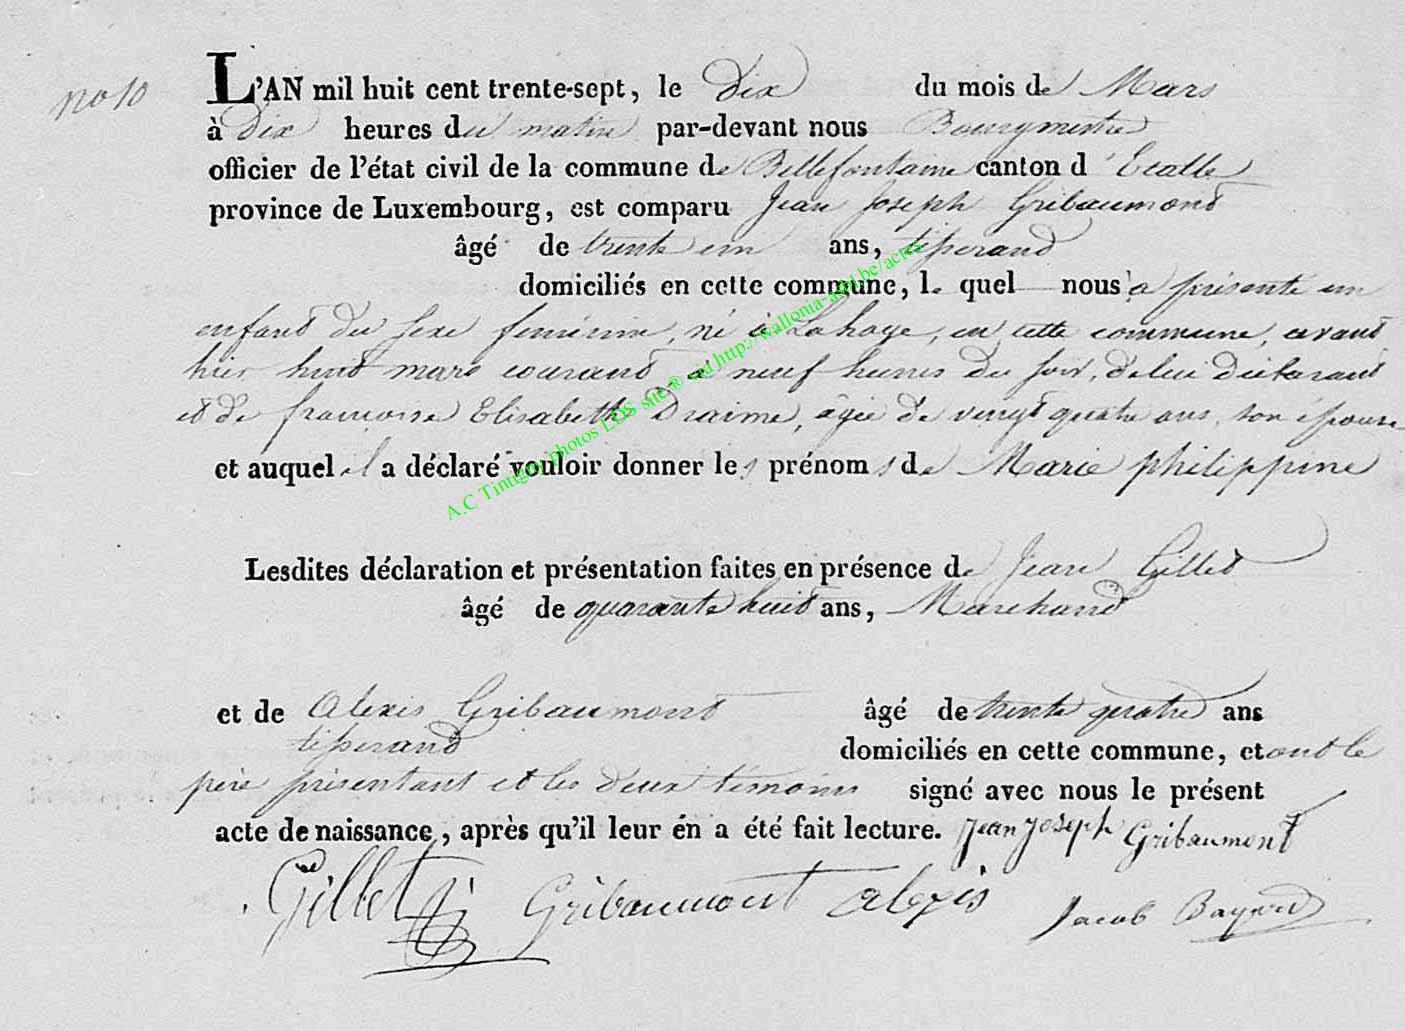 no 10
L'AN mil huit cent trente-sept, le dix du mois de Mars
à dix heures du matin par-devant nous Bourgmestre
officier de l'état civil de la commune de Bellefontaine canton d'Etalle
province de Luxembourg, est comparu Jean Joseph Gribaumont
âgé de trente un ans, tisserand
domiciliés en cette commune, le quel nous a présenté un
enfant du sexe feminin, né à Lahage, en cette commune, avant
hier huit mars courant à neuf heures du soir, de lui déclarant
et de francoise Elisabeth Draime, âgée de vingt quatre ans, son epouse
et auquel il a déclaré vouloir donner les prénoms de Marie philippine
Lesdites déclaration et présentation faites en présence de Jean Gillet
âgé de quarante huit ans, Marchand
et de Alexis Gribaumont âgé de trente quatre ans
tisserand domiciliés en cette commune, et ont le
père présentant et les deux témoins signé avec nous le présent
acte de naissance, après qu'il leur en a été fait lecture. Jean Joseph Gribaumont
Gillet Gribaumont alexis Jacob Bayard
A.C Tintigny photos LDS site ® via http://wallonia-asbl.be/actes